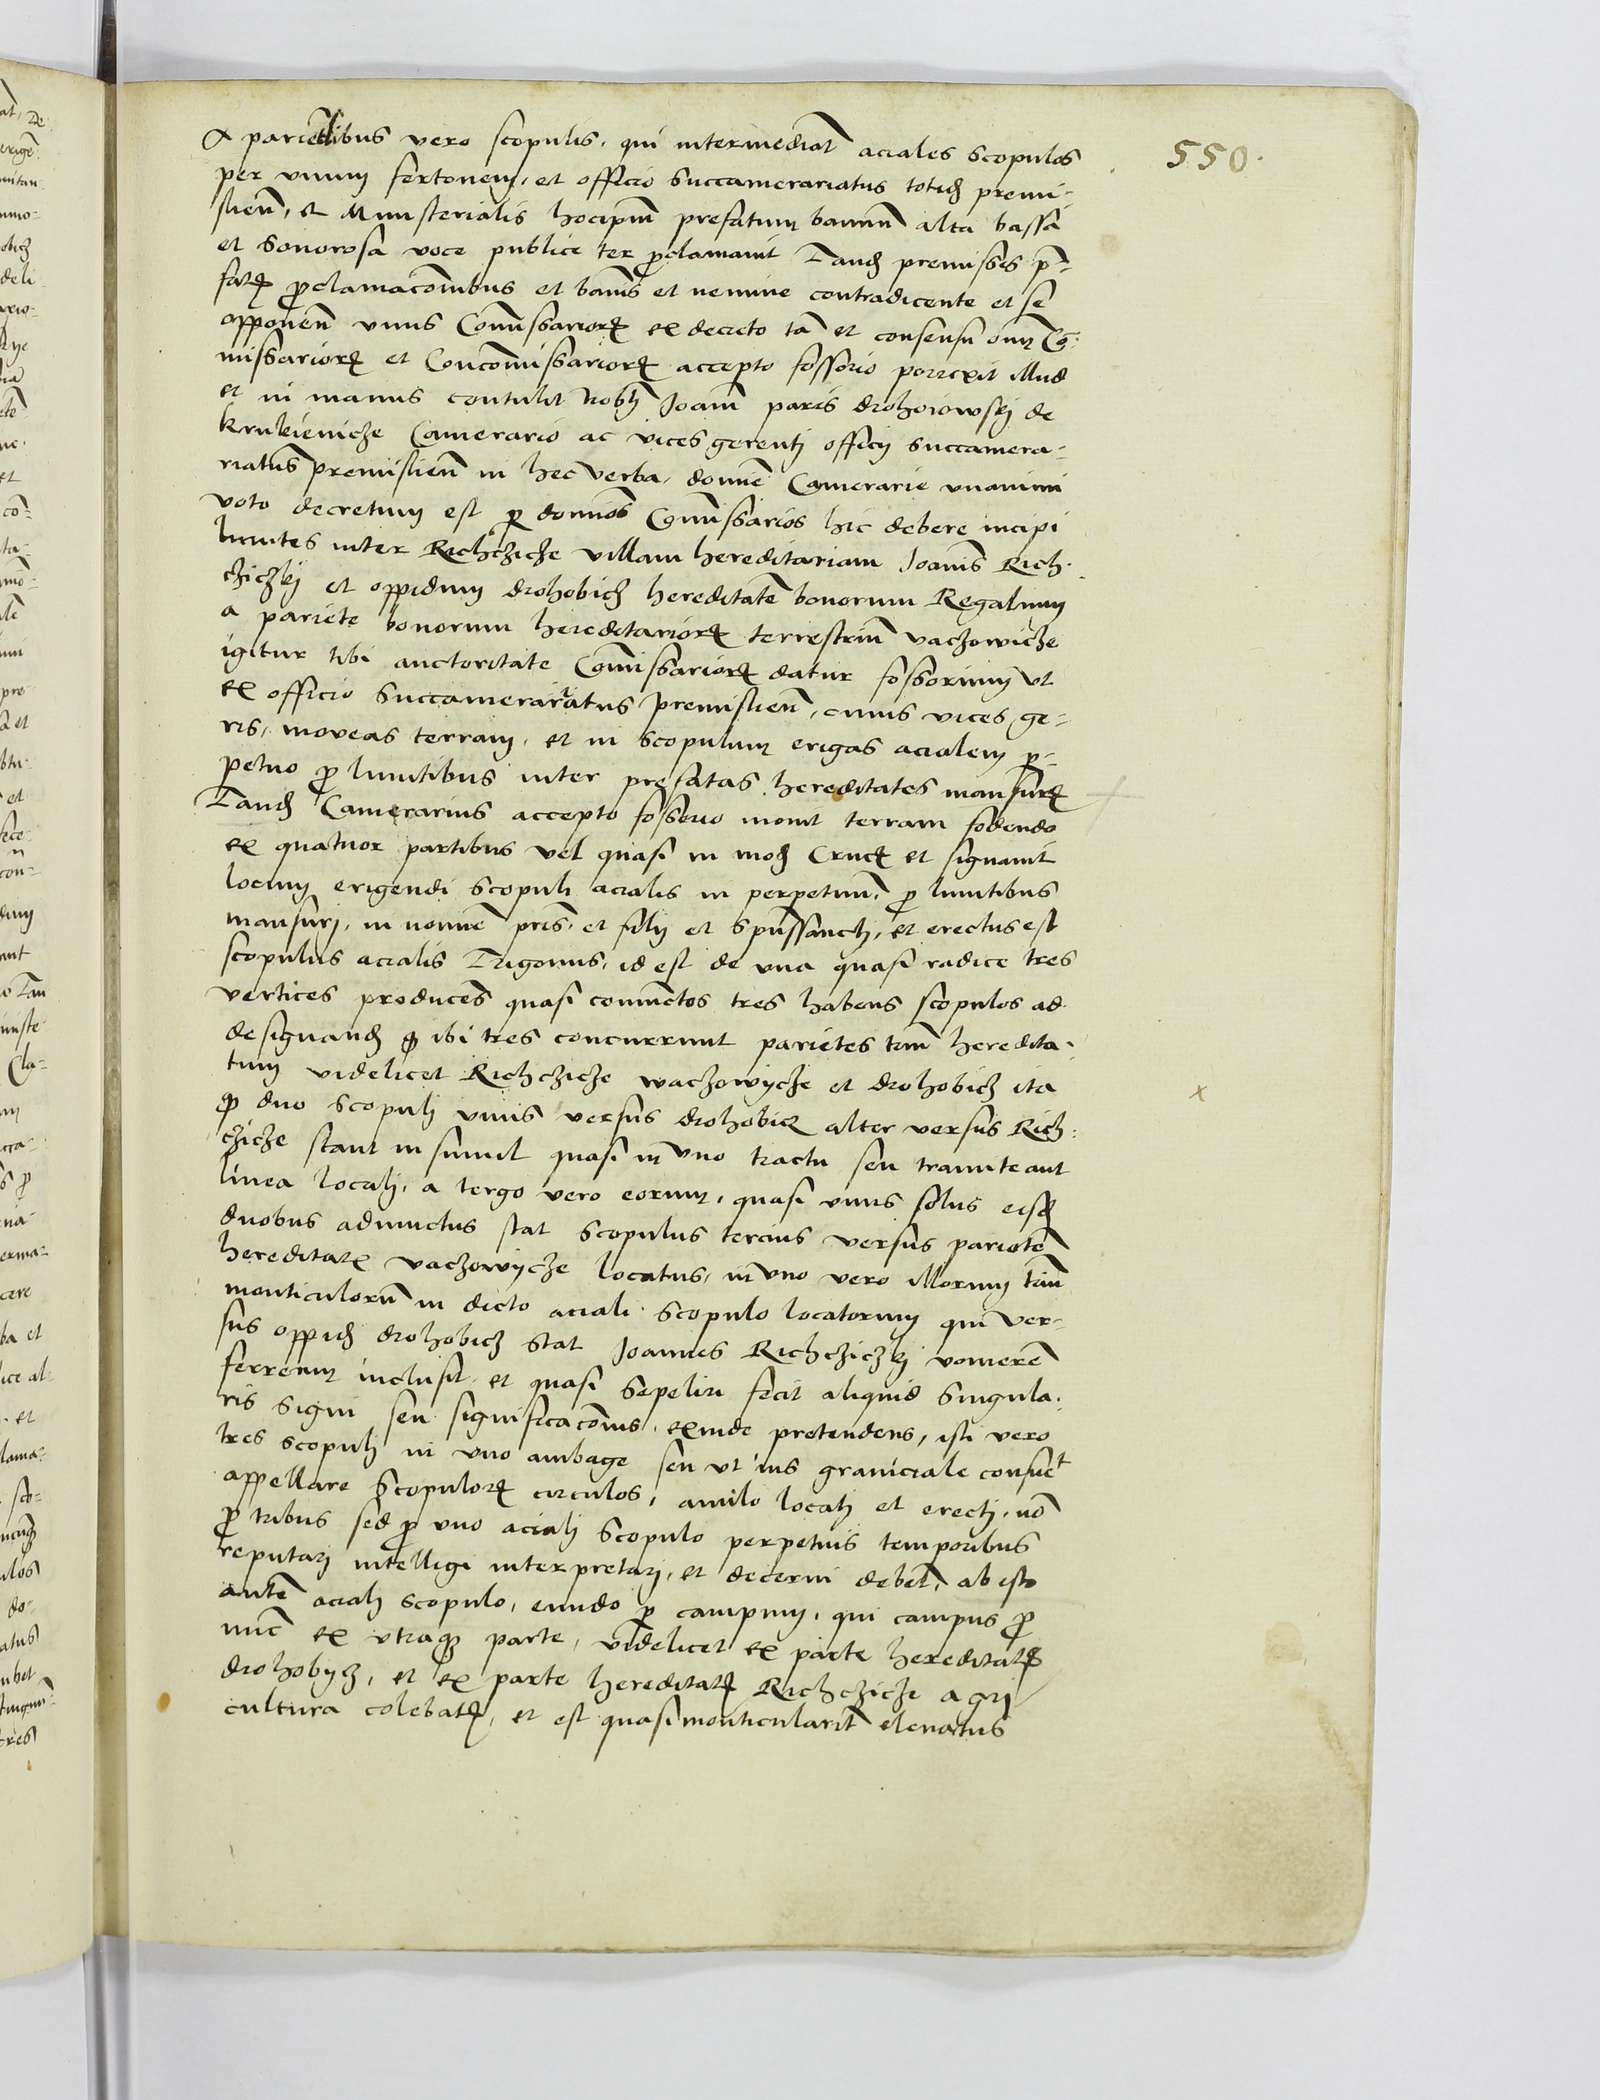 550.
A parietibus vero scopulis, qui intermediat aciales scopulos
per unum fertonem, et officio Succamerariatus totidem premi-
slien, et Ministerialis hocipm prefatum bannum alta bassa
et sonorosa voce publice ter proclamavit Tandem premissis p-
fatis proclamacombus et bannis et nemine contradicente et se
opponen unus Comissariorum ex decreto tam et consensu omum Co-
missariorum et Concomissariorum accepto fossorio porrexit illud
et in manus contulit Nobli Joann paris drohoiowskj de
krukienicze Camerario ac vices gerentj officij succamera-
riatus premislien in hec verba, domine Camerarie unanimi
voto decretum est per dominos Comissarios hic debere incipi
limites inter Richczicze villam hereditariam Joannis Rich-
cziczkj et oppidum drohobicz hereditatem bonorum Regalium
a pariete bonorum hereditariorum terrestrium vaczowicze
igitur tibi auctoritate Comissariorum datur fossorium ut
ex officio succamerariatus premislien, cuius vices ge-
ris, moveas terram, et in scopulum erigas acialem per-
petuo pro limitibus inter prefatas hereditates mansurum
Tandem Camerarius accepto fossorio movit terram fodendo
ex quatuor partibus vel quasi in modum Crucis et signavit
locum erigendi scopuli acialis in perpetuum, pro limitibus
mansurj, in nomine pris, et filij et spussanctj, et erectus est
scopulus acialis Trigonus, id est de una quasi radice tres
vertices producens quasi coniunctos tres habens scopulos ad
designandum quod ibi tres concurrunt parietes trium heredita-
tum videlicet Richczicze waczowycze et drohobicz ita
quod duo scopulj unus versus drohobicz alter versus Rich-
czicze stant in simul quasi in uno tractu seu tramite aut
linea locatj, a tergo vero eorum, quasi unus solus eisdem
duobus adiunctus stat scopulus tercius versus parietem
hereditatis vaczowycze locatus, in uno vero illorum trium
monticulorum in dicto aciali scopulo locatorum qui ver-
sus oppidum drohobicz stat Joannes Richcziczkj vomerem
ferreum inclusit et quasi sepeliri fecit aliquid singula-
ris signi seu significacomis, exinde pretendens, isti vero
tres scopulj in uno ambage seu ut ius graniciale consuet
appellare scopulorum circulos, annulo locatj et erectj, non
pro tribus sed pro uno acialj scopulo perpetuis temporibus
reputarj intelligi interpretarj, et decerni debent, ab isto
autem acialj scopulo, eundo per campum, qui campus pro
nunc ex utraque parte, videlicet ex parte hereditatis
drohobycz, et ex parte hereditatis Richczicze agri
cultura colebatur, et est quasi monticularit elevatus